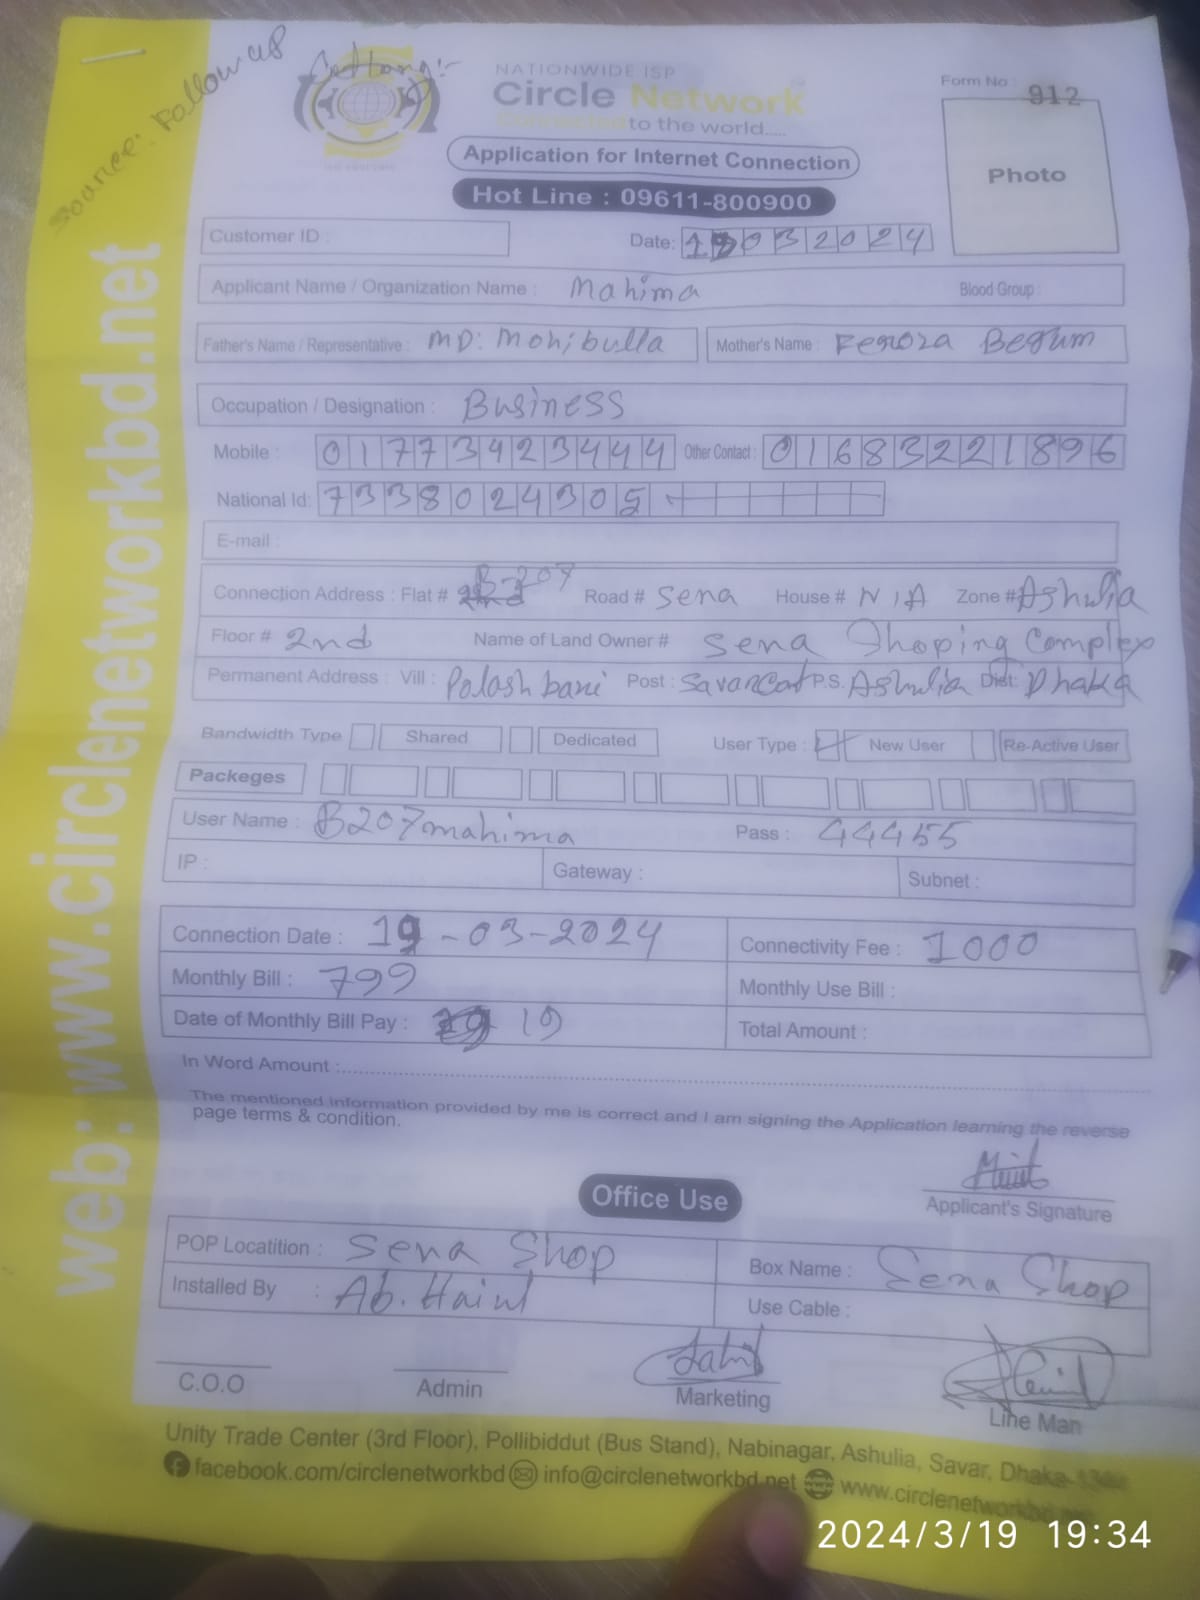 Source: Follow up
NATIONWIDE ISP
Circle Network
Connected to the world.....
Form No : 912
Application for Internet Connection
Photo
Hot Line : 09611-800900
Customer ID :
Date: 19032024
Applicant Name / Organization Name : Mahima Blood Group :
Father's Name / Representative : MD: Mohibulla Mother's Name : Feroza Begum
Occupation / Designation : Business
Mobile : 01773423444 Other Contact : 01683221896
National Id: 7338024305
E-mail :
Connection Address : Flat # B-207 Road # Sena House # N/A Zone # Ashulia
Floor # 2nd Name of Land Owner # Sena Shoping Complex
Permanent Address : Vill : Palash bari Post : Savar Cat P.S. Ashulia Dist: Dhaka
Bandwidth Type Shared Dedicated User Type : New User Re-Active User
Packeges
User Name : B207mahima Pass : 44455
IP : Gateway : Subnet :
Connection Date : 19-03-2024 Connectivity Fee : 1000
Monthly Bill : 799 Monthly Use Bill :
Date of Monthly Bill Pay : 19 Total Amount :
In Word Amount :
The mentioned information provided by me is correct and I am signing the Application learning the reverse
page terms & condition.
Applicant's Signature
Office Use
POP Locatition : Sena Shop Box Name : Sena Shop
Installed By : Ab. Use Cable :
C.O.O Admin Marketing Line Man
Unity Trade Center (3rd Floor), Pollibiddut (Bus Stand), Nabinagar, Ashulia, Savar, Dhaka
facebook.com/circlenetworkbd info@circlenetworkbd.net www.circlenetworkbd
web: www.circlenetworkbd.net
2024/3/19 19:34